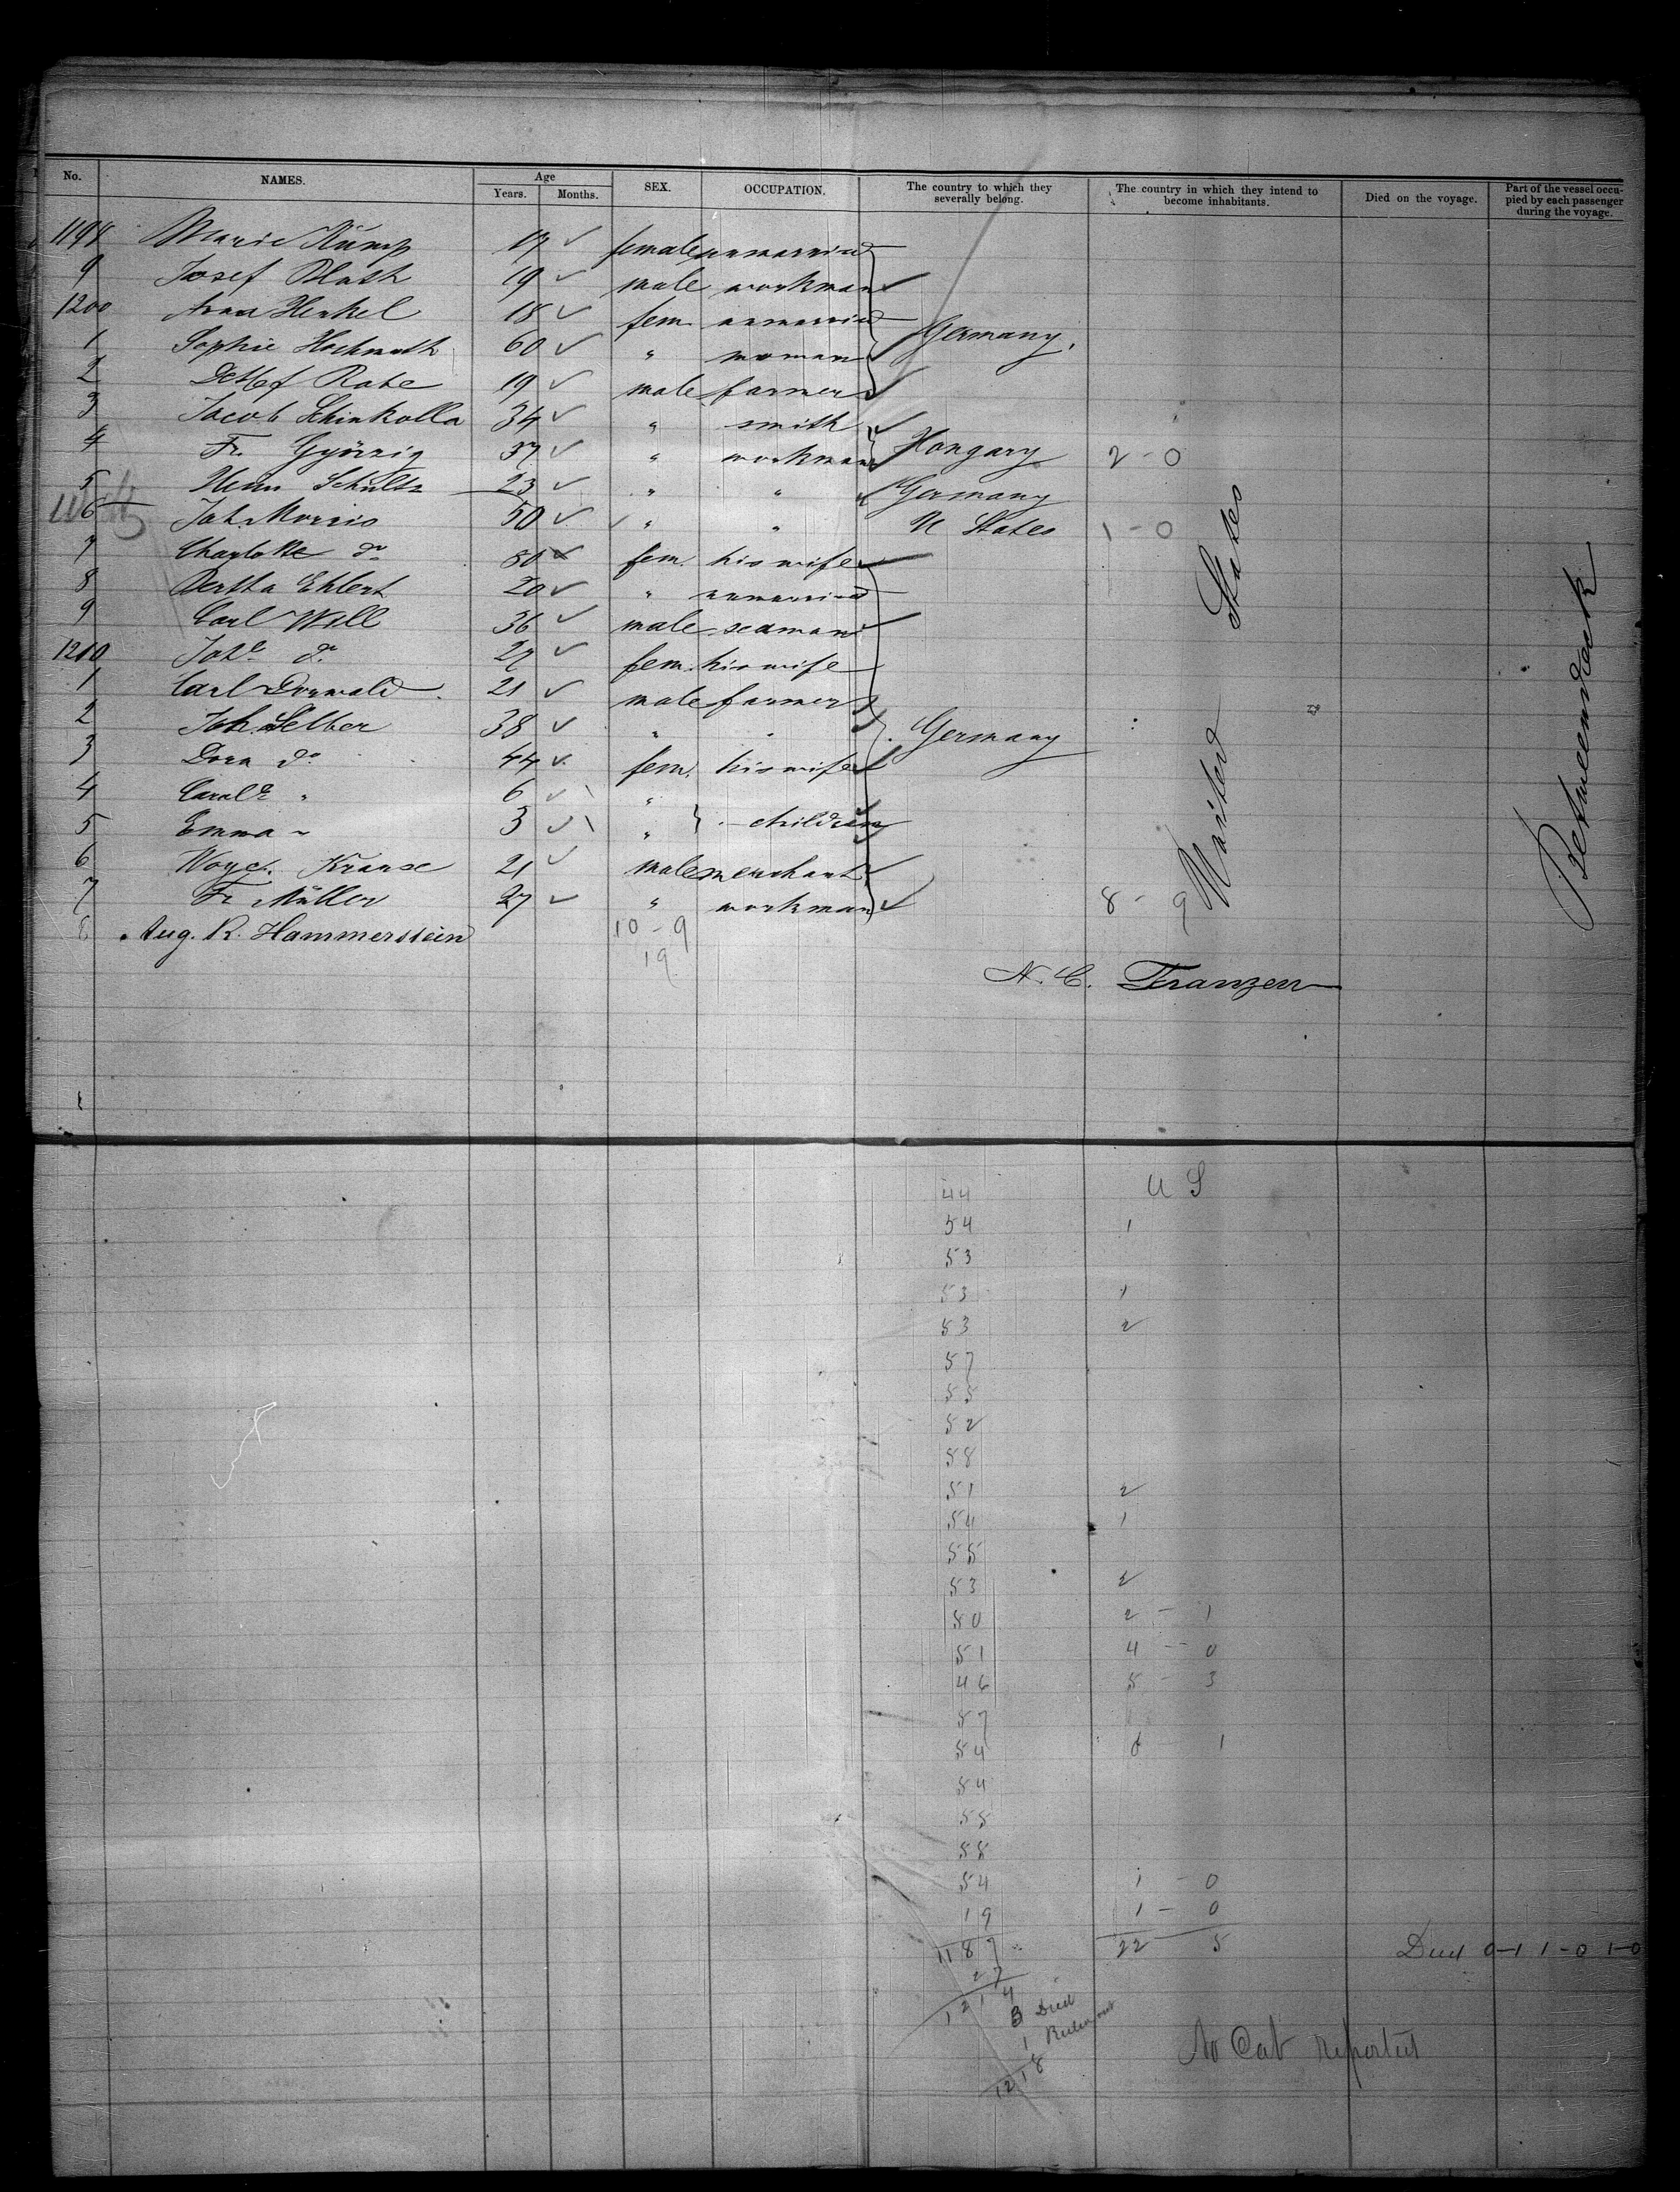 No. NAMES. Age Years. Months. SEX. OCCUPATION. The country to which they severally belong. The country in which they intend to become inhabitants. Died on the voyage. Part of the vessel occupied by each passenger during the voyage.
1198 Marie Kump 17 female unmarried
9 Josef Blask 19 male workman
1200 Anna Henkel 18 fem. unmarried Germany.
1 Sophie Hochmuth 60 " woman
2 Detlef Rabe 19 male farmer
3 Jacob Schinkolla 34 " smith
4 Fr. Györzig 37 " workman Hongary 2 - 0
5 Herm Schultz 23 " " Germany
6 Joh. Morris 50 " " U States 1 - 0
7 Charlotte do 50 fem. his wife
8 Bertha Ehlert 20 " unmarried
9 Carl Will 36 male seaman
1210 Johe do 27 fem. his wife
1 Carl Dorwald 21 male farmer
2 Joh. Selber 38 " " Germany
3 Dora do 44 fem. his wife
4 Carole " 6 "
5 Emma " 3 " children
6 Krause 21 male merchant
7 Fr Müller 27 " workman 8 - 9
8 Aug. R. Hammerstein 10 - 9
19
United States
Betweendeck
N. C. Franzen
44 U S
54 1
53
53 1
53 2
57
55
52
58
51 2
54 1
55
53 2
50 2 - 1
51 4 - 0
46 5 - 3
57
54 0 1
54
55
58
54 1 - 0
19 1 - 0
1187 22 5 Died 0-1 1-0 1-0
27
1214
3 Died
1
1218
No Cab reported